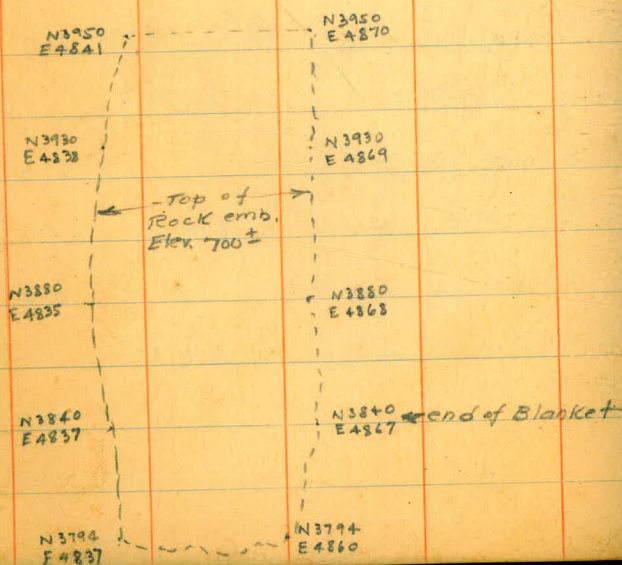 N3950
E4841
N3950
E4870
N3930
E4838
N3930
E4869
Top of
Rock emb.
Elev. 700±
N3880
E4835
N3880
E4868
N3840
E4837
N3840
E4867
end of Blanket
N3794
E4837
N3794
E4860